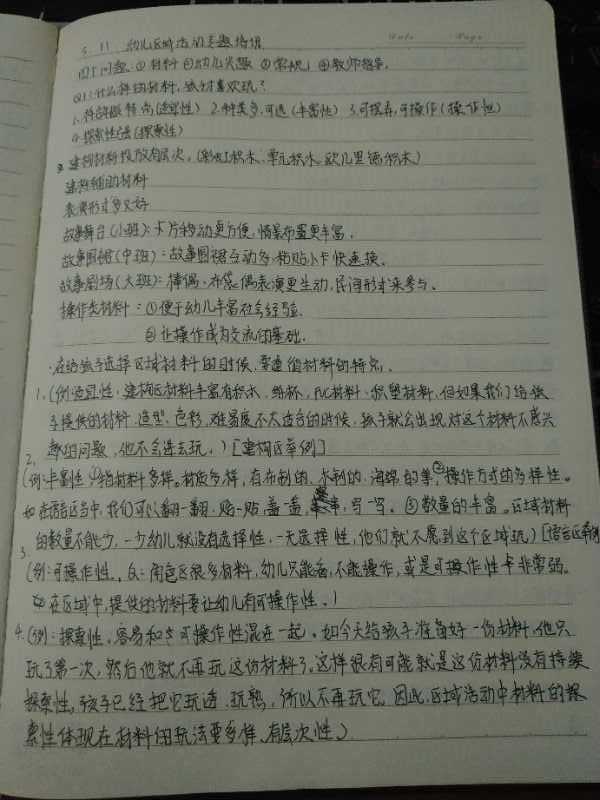 5.11 幼儿区域活动专题培训
Date Page
四个问题:①材料②幼儿兴趣③常规④教师指导
Q1:什么样的材料,孩子喜欢玩?
1.符合年龄特点(适宜性) 2.种类多,可选(丰富性) 3.可摆弄,可操作(操作性)
4.探索性强(探索性)
建构材料投放有层次。(彩虹积木、单元积木、欧几里德积木)
建构辅助材料
表演形式多又好
故事舞台(小班):卡片移动更方便,情景布置更丰富。
故事围裙(中班):故事围裙互动多,粘贴小卡快速换。
故事剧场(大班):棒偶、布袋偶表演更生动,民间形式来参与。
操作类材料:①便于幼儿丰富社会经验
②让操作成为交流的基础。
·在给孩子选择区域材料的时候,要遵循材料的特点。
1.(例:适宜性、建构区材料丰富有积木、纸杯、PVC材料、积塑材料,但如果我们给孩
子提供的材料、造型、色彩,难易度不太适合的时候,孩子就会出现对这个材料不感兴
趣的问题,他不会进去玩。)[建构区举例]
2.
(例:丰富性①指材料多样。材质多样,有布制的、木制的、海绵的等,②操作方式的多样性。
如在语言区当中,我们可以翻一翻、贴一贴、盖一盖,写一写。③数量的丰富。区域材料
的数量不能少,一少幼儿就没有选择性,一无选择性,他们就不愿到这个区域玩)[语言区举例]
3.
(例:可操作性。角色区很多材料,幼儿只能看,不能操作,或是可操作性非常弱。
在区域中,提供的材料要让幼儿有可操作性。)
4.(例:探索性。容易和可操作性混在一起。如今天给孩子准备好一份材料,他只
玩了第一次,然后他就不再玩这份材料了。这样很有可能就是这份材料没有持续
探索性,孩子已经把它玩透、玩熟,所以不再玩它。因此,区域活动中材料的探
索性体现在材料的玩法要多样、有层次性。)